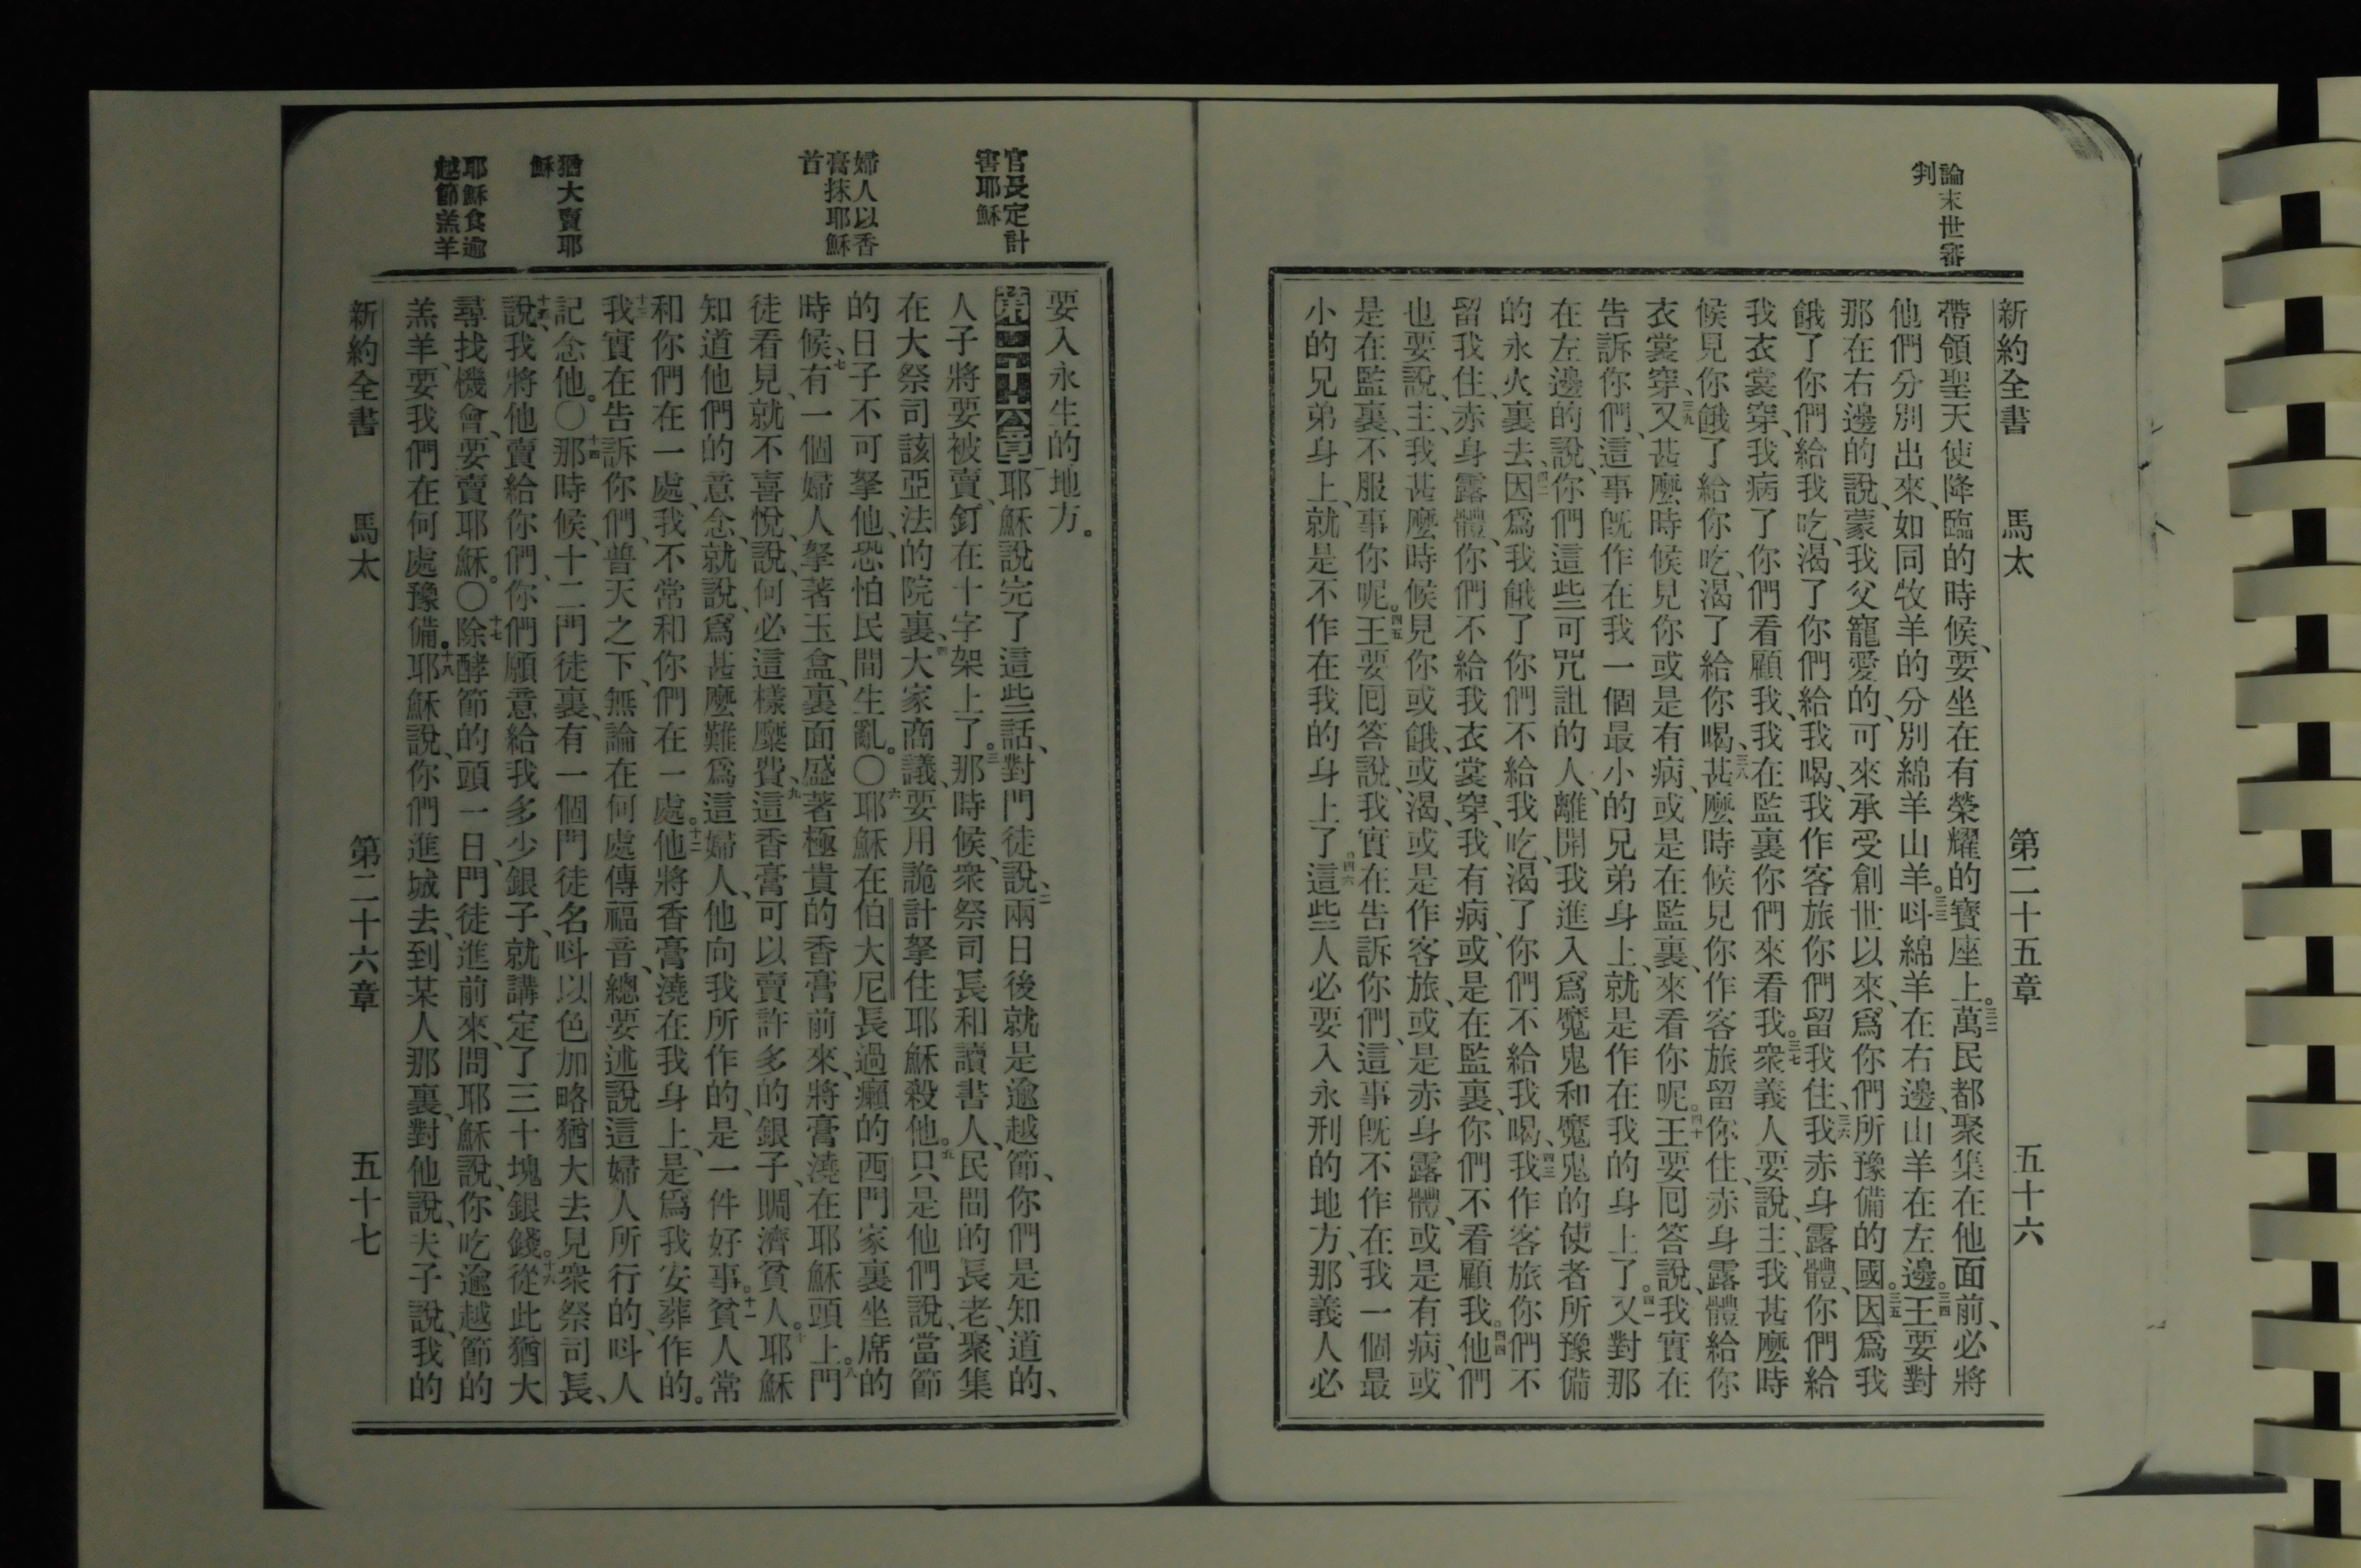 論末世審
判
新約全書 馬太 第二十五章 五十六
帶領聖天使降臨的時候、要坐在有榮耀的寶座上。三二萬民都聚集在他面前、必將
他們分別出來、如同牧羊的分別綿羊山羊。三三呌綿羊在右邊、山羊在左邊。三四王要對
那在右邊的說、蒙我父寵愛的、可來承受創世以來、爲你們所豫備的國。三五因爲我
餓了你們給我吃、渴了你們給我喝、我作客旅你們留我住、三六我赤身露體、你們給
我衣裳穿、我病了你們看顧我、我在監裏你們來看我。三七衆義人要說、主、我甚麼時
候見你餓了給你吃、渴了給你喝、三八甚麼時候見你作客旅留你住、赤身露體給你
衣裳穿、三九又甚麼時候見你或是有病、或是在監裏、來看你呢。四十王要回答說、我實在
告訴你們、這事旣作在我一個最小的兄弟身上、就是作在我的身上了。四一又對那
在左邊的說、你們這些可咒詛的人、離開我進入爲魔鬼和魔鬼的使者所豫備
的永火裏去、四二因爲我餓了你們不給我吃、渴了你們不給我喝、四三我作客旅你們不
留我住、赤身露體、你們不給我衣裳穿、我有病、或是在監裏、你們不看顧我。四四他們
也要說、主、我甚麼時候見你或餓、或渴、或是作客旅、或是赤身露體、或是有病、或
是在監裏、不服事你呢。四五王要回答說、我實在告訴你們、這事旣不作在我一個最
小的兄弟身上、就是不作在我的身上了。四六這些人必要入永刑的地方、那義人必
官長定計
害耶穌
婦人以香
膏抹耶穌
首
猶大賣耶
穌
耶穌食逾
越節羔羊
要入永生的地方。
第二十六章一耶穌說完了這些話、對門徒說、二兩日後就是逾越節、你們是知道的、
人子將要被賣、釘在十字架上了。三那時候、衆祭司長和讀書人、民間的長老、聚集
在大祭司該亞法的院裏、四大家商議、要用詭計拏住耶穌殺他。五只是他們說、當節
的日子不可拏他、恐怕民間生亂。〇六耶穌在伯大尼長過癩的西門家裏坐席的
時候、七有一個婦人拏著玉盒、裏面盛著極貴的香膏前來、將膏澆在耶穌頭上。八門
徒看見、就不喜悅、說、何必這樣糜費、九這香膏可以賣許多的銀子、賙濟貧人。十耶穌
知道他們的意念、就說、爲甚麼難爲這婦人、他向我所作的、是一件好事。十一貧人常
和你們在一處、我不常和你們在一處。十二他將香膏澆在我身上、是爲我安葬作的。
十三我實在告訴你們、普天之下、無論在何處傳福音、總要述說這婦人所行的、呌人
記念他。〇十四那時候、十二門徒裏、有一個門徒名呌以色加略猶大去見衆祭司長、
十五說、我將他賣給你們、你們願意給我多少銀子、就講定了三十塊銀錢。十六從此猶大
尋找機會、要賣耶穌。〇十七除酵節的頭一日、門徒進前來、問耶穌說、你吃逾越節的
羔羊、要我們在何處豫備。十八耶穌說、你們進城去、到某人那裏、對他說、夫子說、我的
新約全書 馬太 第二十六章 五十七